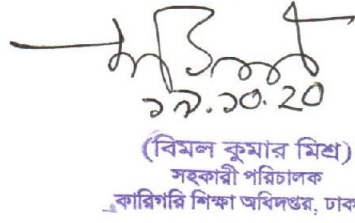 ১৯.১০.20
(বিমল কুমার মিশ্র)
সহকারী পরিচালক
কারিগরি শিক্ষা অধিদপ্তর, ঢাকা